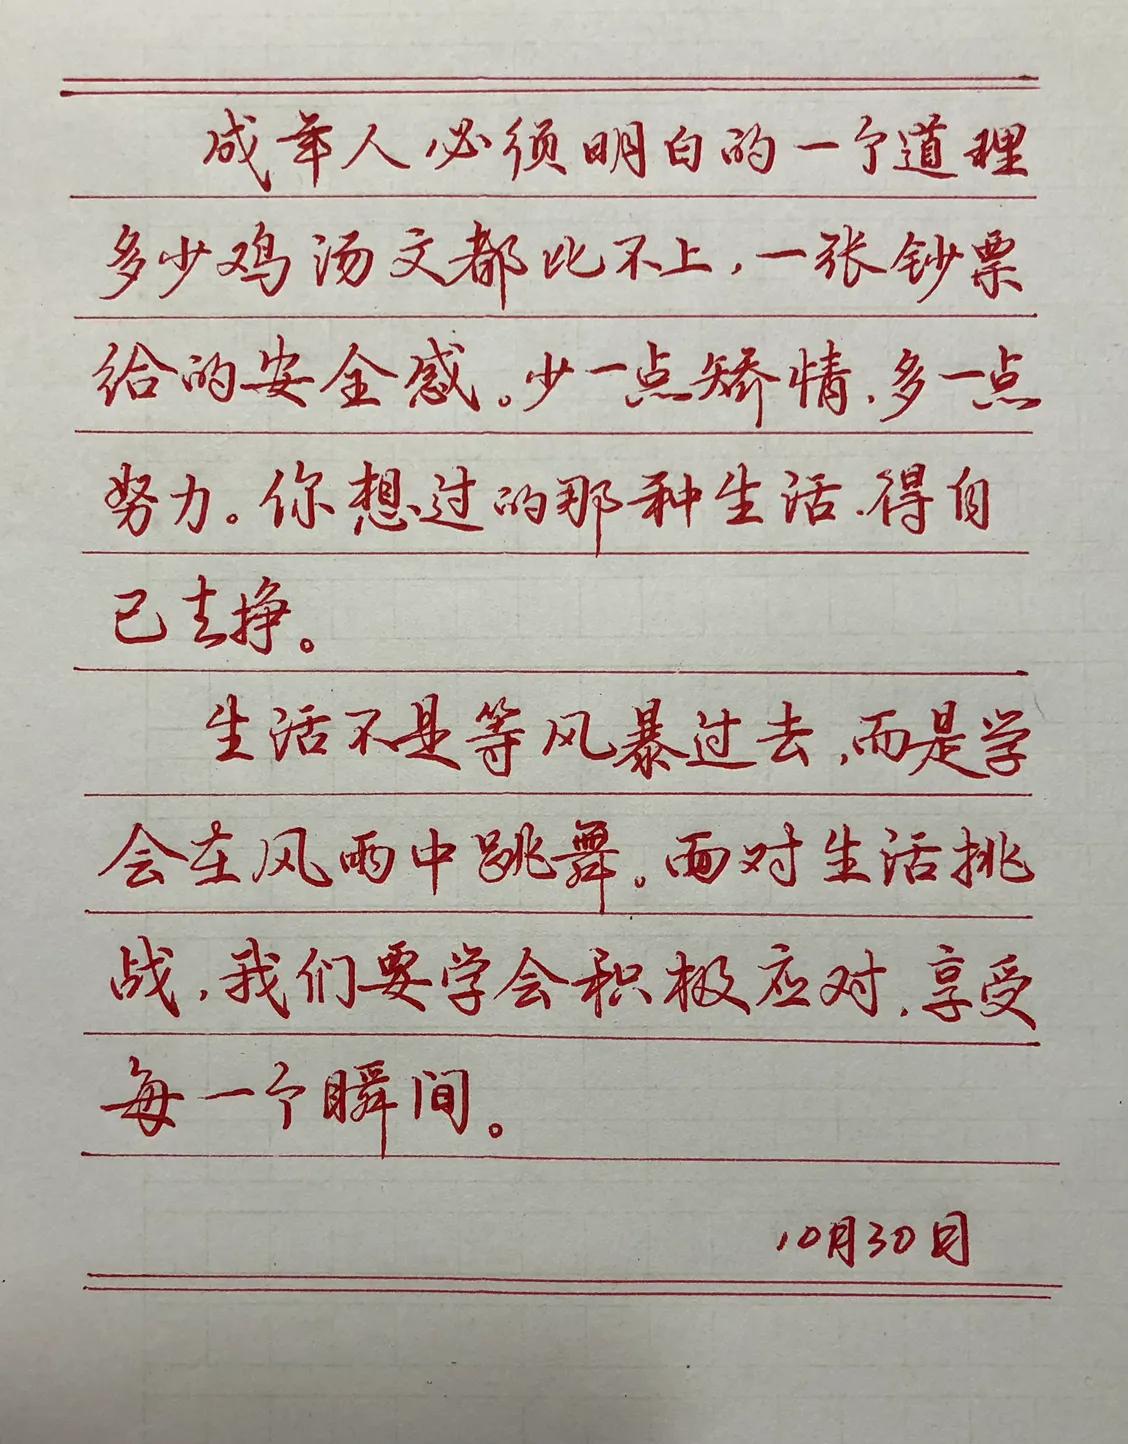 成年人必须明白的一个道理
多少鸡汤文都比不上,一张钞票
给的安全感。少一点矫情,多一点
努力。你想过的那种生活,得自
己去挣。
生活不是等风暴过去,而是学
会在风雨中跳舞。面对生活挑
战,我们要学会积极应对,享受
每一个瞬间。
10月30日